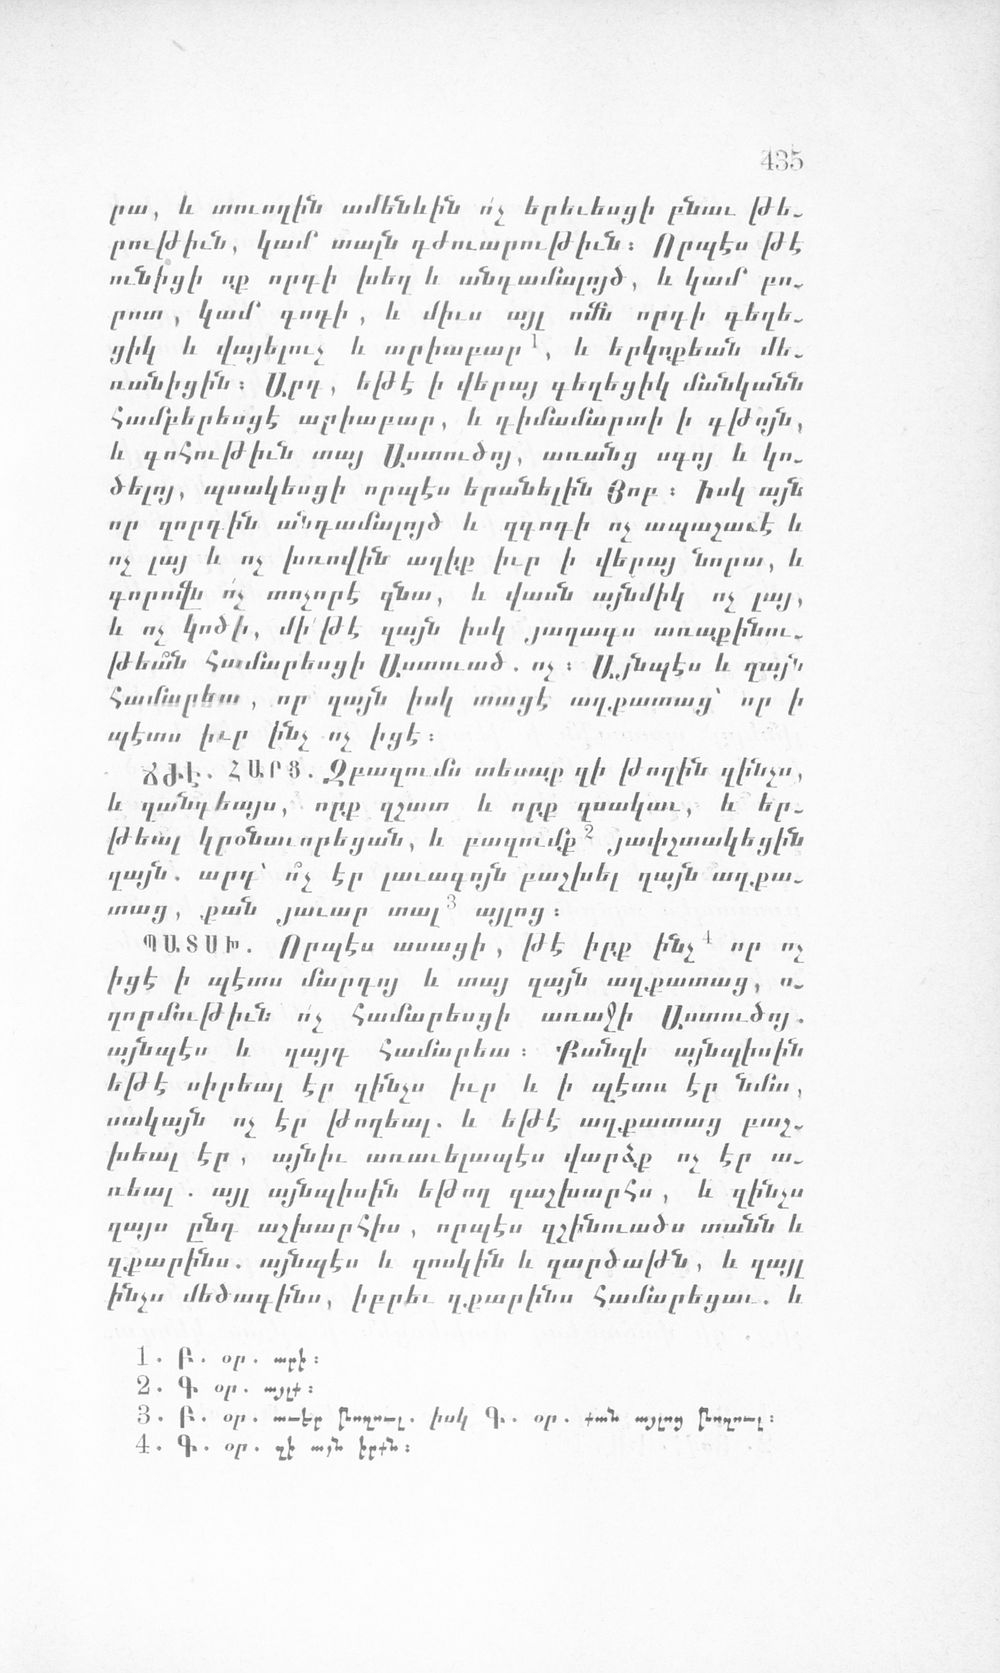 435
րա, և տուողին ամենևին ո՛չ երեւեսցի բնաւ թե֊
րութիւն, կամ տալն դժուարութիւն։ Որպէս թէ
ունիցի ոք որդի խեղ և անդամալոյծ, և կամ բո֊
րոտ, կամ գոդի, և միւս այլ ոմն որդի գեղե֊
ցիկ և վայելուչ և արիաբար 1, և երկոքեան մե֊
ռանիցին։ Արդ, եթէ ի վերայ գեղեցիկ մանկանն
համբերեսցէ արիաբար, և դիմամարտի ի գթոյն,
և գոհութիւն տայ Աստուծոյ, առանց սգոյ և կո֊
ծելոյ, պսակեսցի որպէս երանելին Յոբ։ Իսկ այն
որ զորդին անդամալոյծ և զգոդի ոչ ապաշաւէ և
ոչ լայ և ոչ խռովին աղիք իւր ի վերայ նորա, և
գորովն ո՛չ տոչորէ զնա, և վասն այնմիկ ոչ լայ,
և ոչ կոծի, մի՛ թէ զայն իսկ յաղագս առաքինու֊
թեան համարեսցի Աստուած. ոչ։ Այնպէս և զայն
համարեա, որ զայն իսկ տացէ աղքատաց՝ որ ի
պէտս իւր ինչ ոչ իցէ։
ՃԺԷ. ՀԱՐՑ. Զբազումս տեսաք զի թողին զինչս,
և զանդեայս, որք զշատ և որք զսակաւ, և եր֊
թեալ կրօնաւորեցան, և բազումք 2 յափշտակեցին
զայն. արդ՝ ո՞չ էր լաւագոյն բաշխել զայն աղքա֊
տաց, քան յաւար տալ 3 այլոց։
ՊԱՏԱՍԽ. Որպէս ասացի, թէ իրք ինչ 4 որ ոչ
իցէ ի պէտս մարդոյ և տայ զայն աղքատաց, ո֊
ղորմութիւն ո՛չ համարեսցի առաջի Աստուծոյ.
այնպէս և զայդ համարեա։ Քանզի այնպիսին
եթէ սիրեալ էր զինչս իւր և ի պէտս էր նմա,
սակայն ոչ էր թողեալ. և եթէ աղքատաց բաշ֊
խեալ էր, այնիւ առաւելապէս վարձք ոչ էր ա֊
ռեալ. այլ այնպիսին եթող զաշխարհս, և զինչս
զայս ընդ աշխարհիս, որպէս զշինուածս տանն և
զքարինս. այնպէս և զոսկին և զարծաթն, և զայլ
ինչս մեծագինս, իբրեւ զքարինս համարեցաւ. և
1. Բ. օր. արի։
2. Գ. օր. այլք։
3. Բ. օր. աւեր թողուլ. իսկ Գ. օր. քան այլոց թողուլ։
4. Գ. օր. զի այն իրքն։